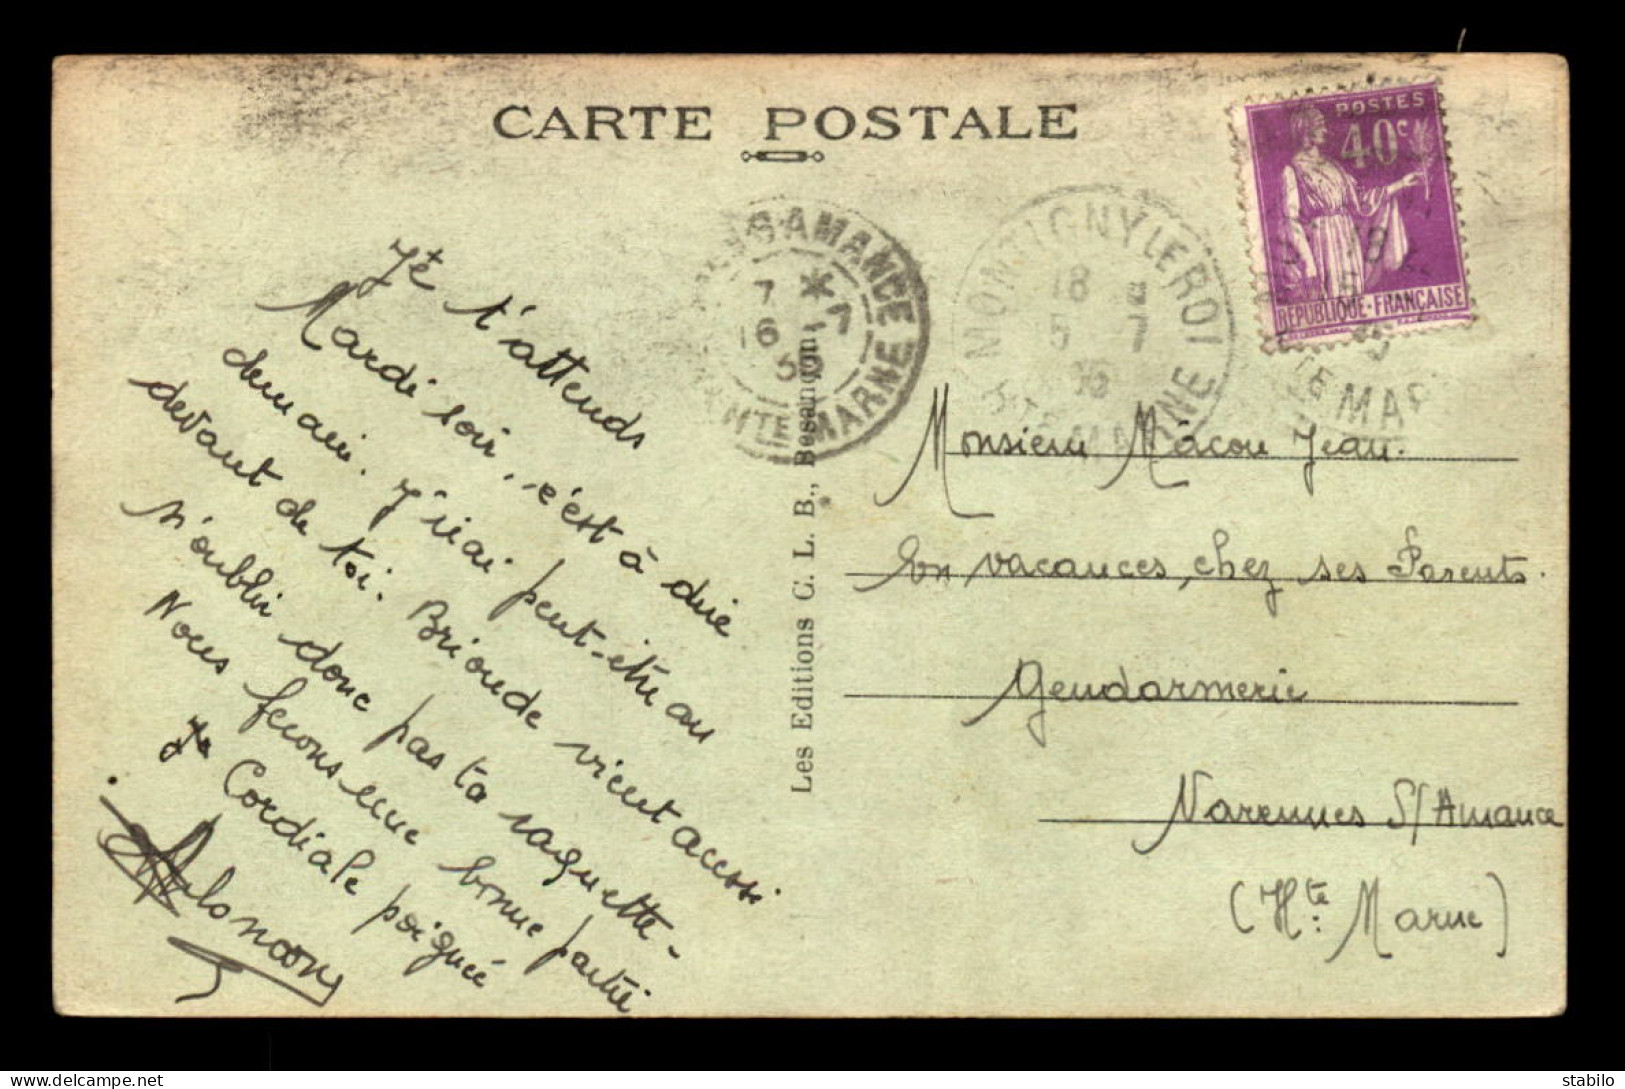 CARTE POSTALE
POSTES
40c
REPUBLIQUE-FRANÇAISE
MONTIGNY LE ROI
18
5 7
HTE MARNE
S AMANCE
7 *
16 - 7
HAUTE MARNE
Je t'attends
Mardi soir, c'est à dire
demain. J'irai peut-être au
devant de toi. Brioude vient aussi
N'oublie donc pas ta raquette-
Nous ferons une bonne partie
Cordiale poignée
Les Editions C. L. B., Besançon
Monsieur Mâcon Jean.
En vacances, chez ses Parents.
Gendarmerie
Varennes S/Amance
(Hte Marne)
delcampe.net
stabilo